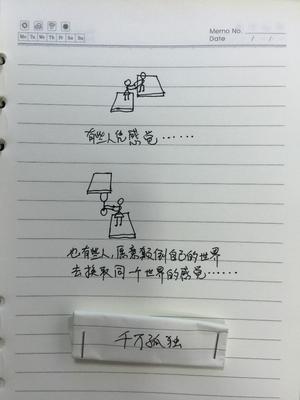 Memo No.
Mo Tu We Th Fr Sa Su
Date / /
有些人凭感觉……
也有些人,愿意颠倒自己的世界
去换取同一个世界的感觉……
千万孤独